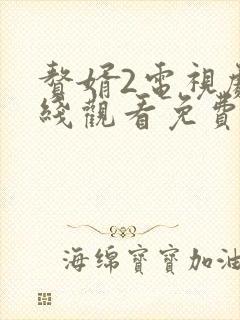 贅婿2電視劇
綫觀看免費
海绵寶寶加油